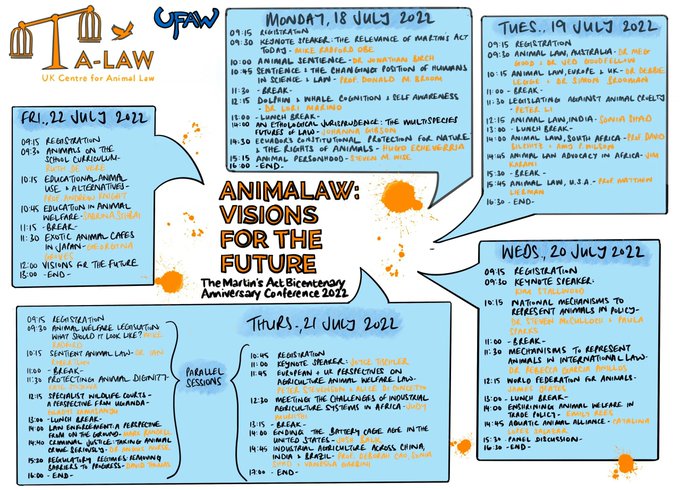 A-LAW
UK Centre for Animal Law
UFAW
MONDAY, 18 JULY 2022
09:15 REGISTRATION
09:30 KEYNOTE SPEAKER: THE RELEVANCE OF MARTINS ACT
TODAY - MIKE RADFORD OBE
10:00 ANIMAL SENTIENCE - DR JONATHAN BIRCH
10:45 SENTIENCE & THE CHANGING POSITION OF HUMANS
IN SCIENCE & LAW - PROF. DONALD M. BROOM
11:30 - BREAK-
12:15 DOLPHIN & WHALE COGNITION & SELF AWARENESS
- DR LORI MARINO
13:00 - LUNCH BREAK-
14:00 AN ETHOLOGICAL JURISPRUDENCE: THE MULTISPECIES
FUTURES OF LAW - JOHANNA GIBSON
14:30 ECUADOR'S CONSTITUTIONAL PROTECTION FOR NATURE
& THE RIGHTS OF ANIMALS - HUGO ECHEVERRIA
15:15 ANIMAL PERSONHOOD - STEVEN M WISE
16:00 -END-
TUES., 19 JULY 2022
09:15 REGISTRATION
09:30 ANIMAL LAW, AUSTRALIA - DR MEG
GOOD & DR JED GOODFELLOW
10:15 ANIMAL LAW, EUROPE & UK - DR DEBBIE
LEGGE & DR SIMON BROOMAN
11:00 - BREAK-
11:30 LEGISLATING AGAINST ANIMAL CRUELTY
- PETER LI
12:15 ANIMAL LAW, INDIA - SONIA SHAD
13:00 - LUNCH BREAK-
14:00 ANIMAL LAW, SOUTH AFRICA - PROF DAVID
BILCHITZ & AMY P. WILSON
14:45 ANIMAL LAW ADVOCACY IN AFRICA - JIM
KARANI
15:30 - BREAK-
15:45 ANIMAL LAW, U.S.A. - PROF MATTHEW
LIEBMAN
16:30 -END-
FRI., 22 JULY 2022
09:15 REGISTRATION
09:30 ANIMALS ON THE
SCHOOL CURRICULUM-
RUTH DE VERE
10:15 EDUCATIONAL ANIMAL
USE & ALTERNATIVES-
PROF. ANDREW KNIGHT
10:45 EDUCATION IN ANIMAL
WELFARE - SABRINA
11:15 - BREAK-
11:30 EXOTIC ANIMAL CAFES
IN JAPAN - GEORGINA
GROVES
12:00 VISIONS FOR THE FUTURE
13:00 -END-
ANIMALAW:
VISIONS
FOR THE
FUTURE
The Martin's Act Bicentenary
Anniversary Conference 2022
WEDS., 20 JULY 2022
09:15 REGISTRATION
09:30 KEYNOTE SPEAKER-
KIM STALLWOOD
10:15 NATIONAL MECHANISMS TO
REPRESENT ANIMALS IN POLICY-
DR STEVEN MCCULLOCH & PAULA
SPARKS
11:00 - BREAK-
11:30 MECHANISMS TO REPRESENT
ANIMALS IN INTERNATIONAL LAW-
DR REBECA GARCIA
12:15 WORLD FEDERATION FOR ANIMALS-
JAMES YEATES
13:00 - LUNCH BREAK-
14:00 ENSHRINING ANIMAL WELFARE IN
TRADE POLICY - EMILY REES
14:45 AQUATIC ANIMAL ALLIANCE - CATALINA
LOPEZ SALAZAR
15:30 PANEL DISCUSSION-
16:30 -END-
THURS., 21 JULY 2022
09:15 REGISTRATION
09:30 ANIMAL WELFARE LEGISLATION
WHAT SHOULD IT LOOK LIKE? MIKE
RADFORD
10:15 SENTIENT ANIMAL LAW - DR IAN
11:00 - BREAK-
11:30 PROTECTING ANIMAL DIGNITY-
12:15 SPECIALIST WILDLIFE COURTS -
A PERSPECTIVE FROM UGANDA-
GLADYS KAMASANYU
13:00 - LUNCH BREAK
14:00 LAW ENFORCEMENT: A PERSPECTIVE
FROM ON THE GROUND - MARK RANDELL
14:40 CRIMINAL JUSTICE: TAKING ANIMAL
CRIME SERIOUSLY - DR ANGUS NURSE
15:20 REGULATORY REGIMES: REMOVING
BARRIERS TO PROGRESS - DAVID THOMAS
16:00 -END-
PARALLEL
SESSIONS
10:45 REGISTRATION
11:00 KEYNOTE SPEAKER: JOYCE TISCHLER
11:45 EUROPEAN & UK PERSPECTIVES ON
AGRICULTURE ANIMAL WELFARE LAW-
PETER STEVENSON & ALICE DI CONCETTO
12:30 MEETING THE CHALLENGES OF INDUSTRIAL
AGRICULTURE SYSTEMS IN AFRICA - JUDY
MURIITHI
13:15 - BREAK-
14:00 ENDING THE BATTERY CAGE AGE IN THE
UNITED STATES - JOSH BALK
14:45 INDUSTRIAL AGRICULTURE ACROSS CHINA,
INDIA & BRAZIL - PROF. DEBORAH CAO, SONIA
SHAD & VANESSA
17:00 -END-